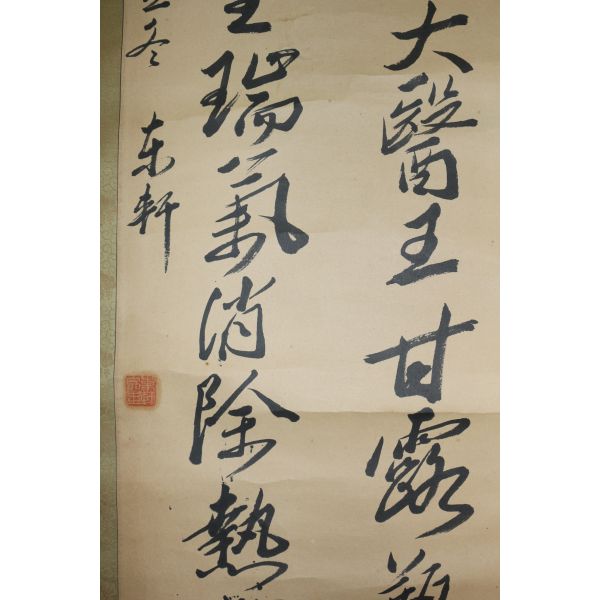 大醫王甘露瓶
瑞氣消除熱
冬
東軒